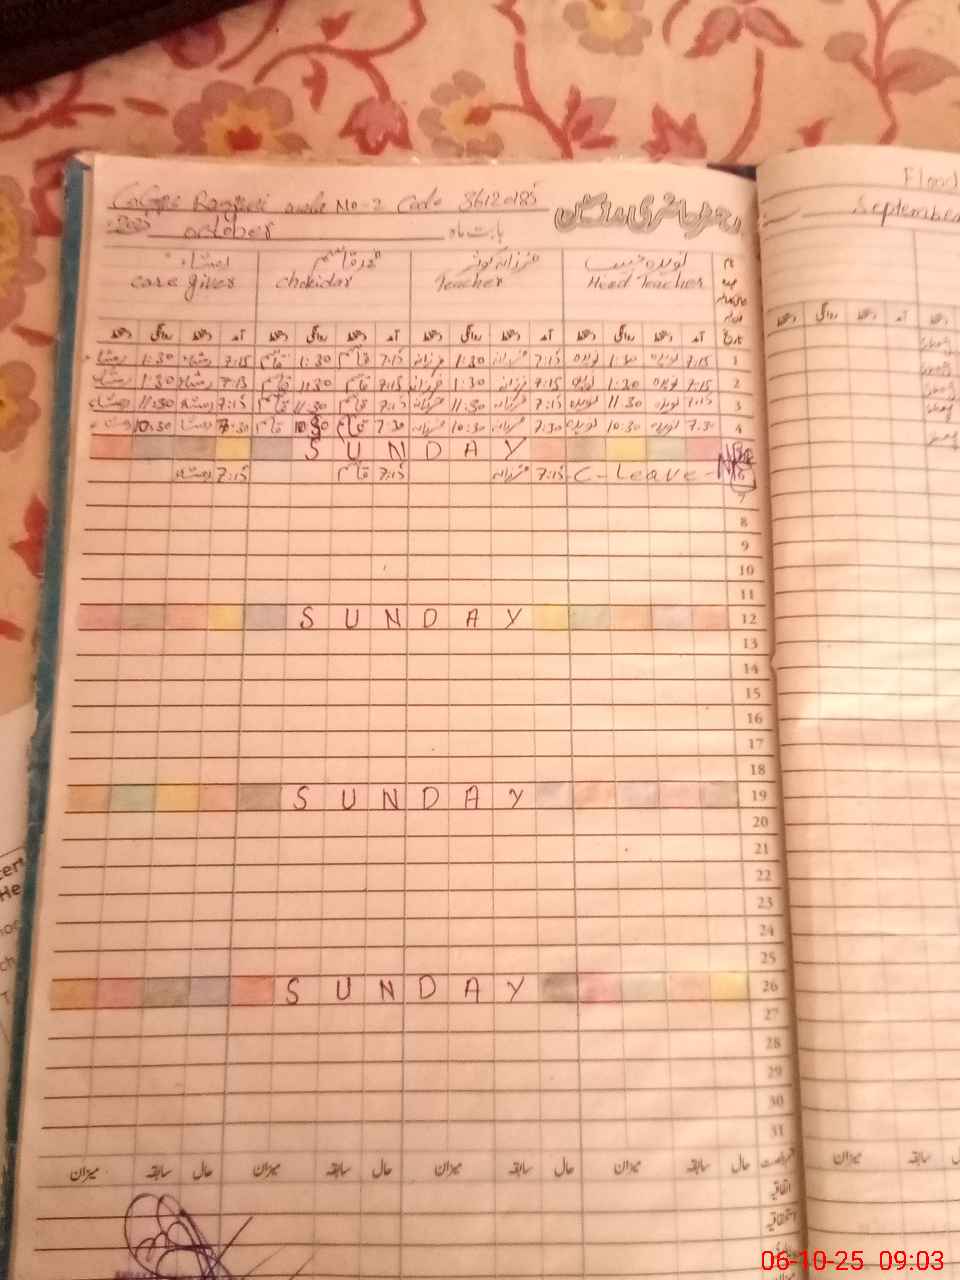 No-2 Code 36120185
رجسٹر حاضری مدرسین
2025 october بابت ماہ
نویدہ حبیب فرزانہ کوثر محمد قاسم
Head Teacher Teacher chokidar care giver
نام
عہدہ
تاریخ آمد دستخط روانگی دستخط آمد دستخط روانگی دستخط آمد دستخط روانگی دستخط آمد دستخط روانگی دستخط
1 7:15 نویدہ 1:30 نویدہ 7:15 فرزانہ 1:30 فرزانہ 7:15 قاسم 1:30 قاسم 7:15 1:30
2 7:15 نویدہ 1:30 نویدہ 7:15 فرزانہ 1:30 فرزانہ 7:15 قاسم 11:30 قاسم 7:15 1:30
3 7:15 نویدہ 11:30 نویدہ 7:15 فرزانہ 11:30 فرزانہ 7:15 قاسم 11:30 قاسم 7:15 11:30
4 7:30 نویدہ 10:30 نویدہ 7:30 فرزانہ 10:30 فرزانہ 7:30 قاسم 10:30 قاسم 7:30 10:30
SUNDAY
C-Leave- 7:15 فرزانہ 7:15 قاسم 7:15
7
8
9
10
11
12 SUNDAY
13
14
15
16
17
18
19 SUNDAY
20
21
22
23
24
25
26 SUNDAY
27
28
29
30
31
حال سابقہ میزان حال سابقہ میزان حال سابقہ میزان حال سابقہ میزان
اتفاقیہ
Flood
September
آمد دستخط روانگی دستخط
سابقہ میزان
06-10-25 09:03